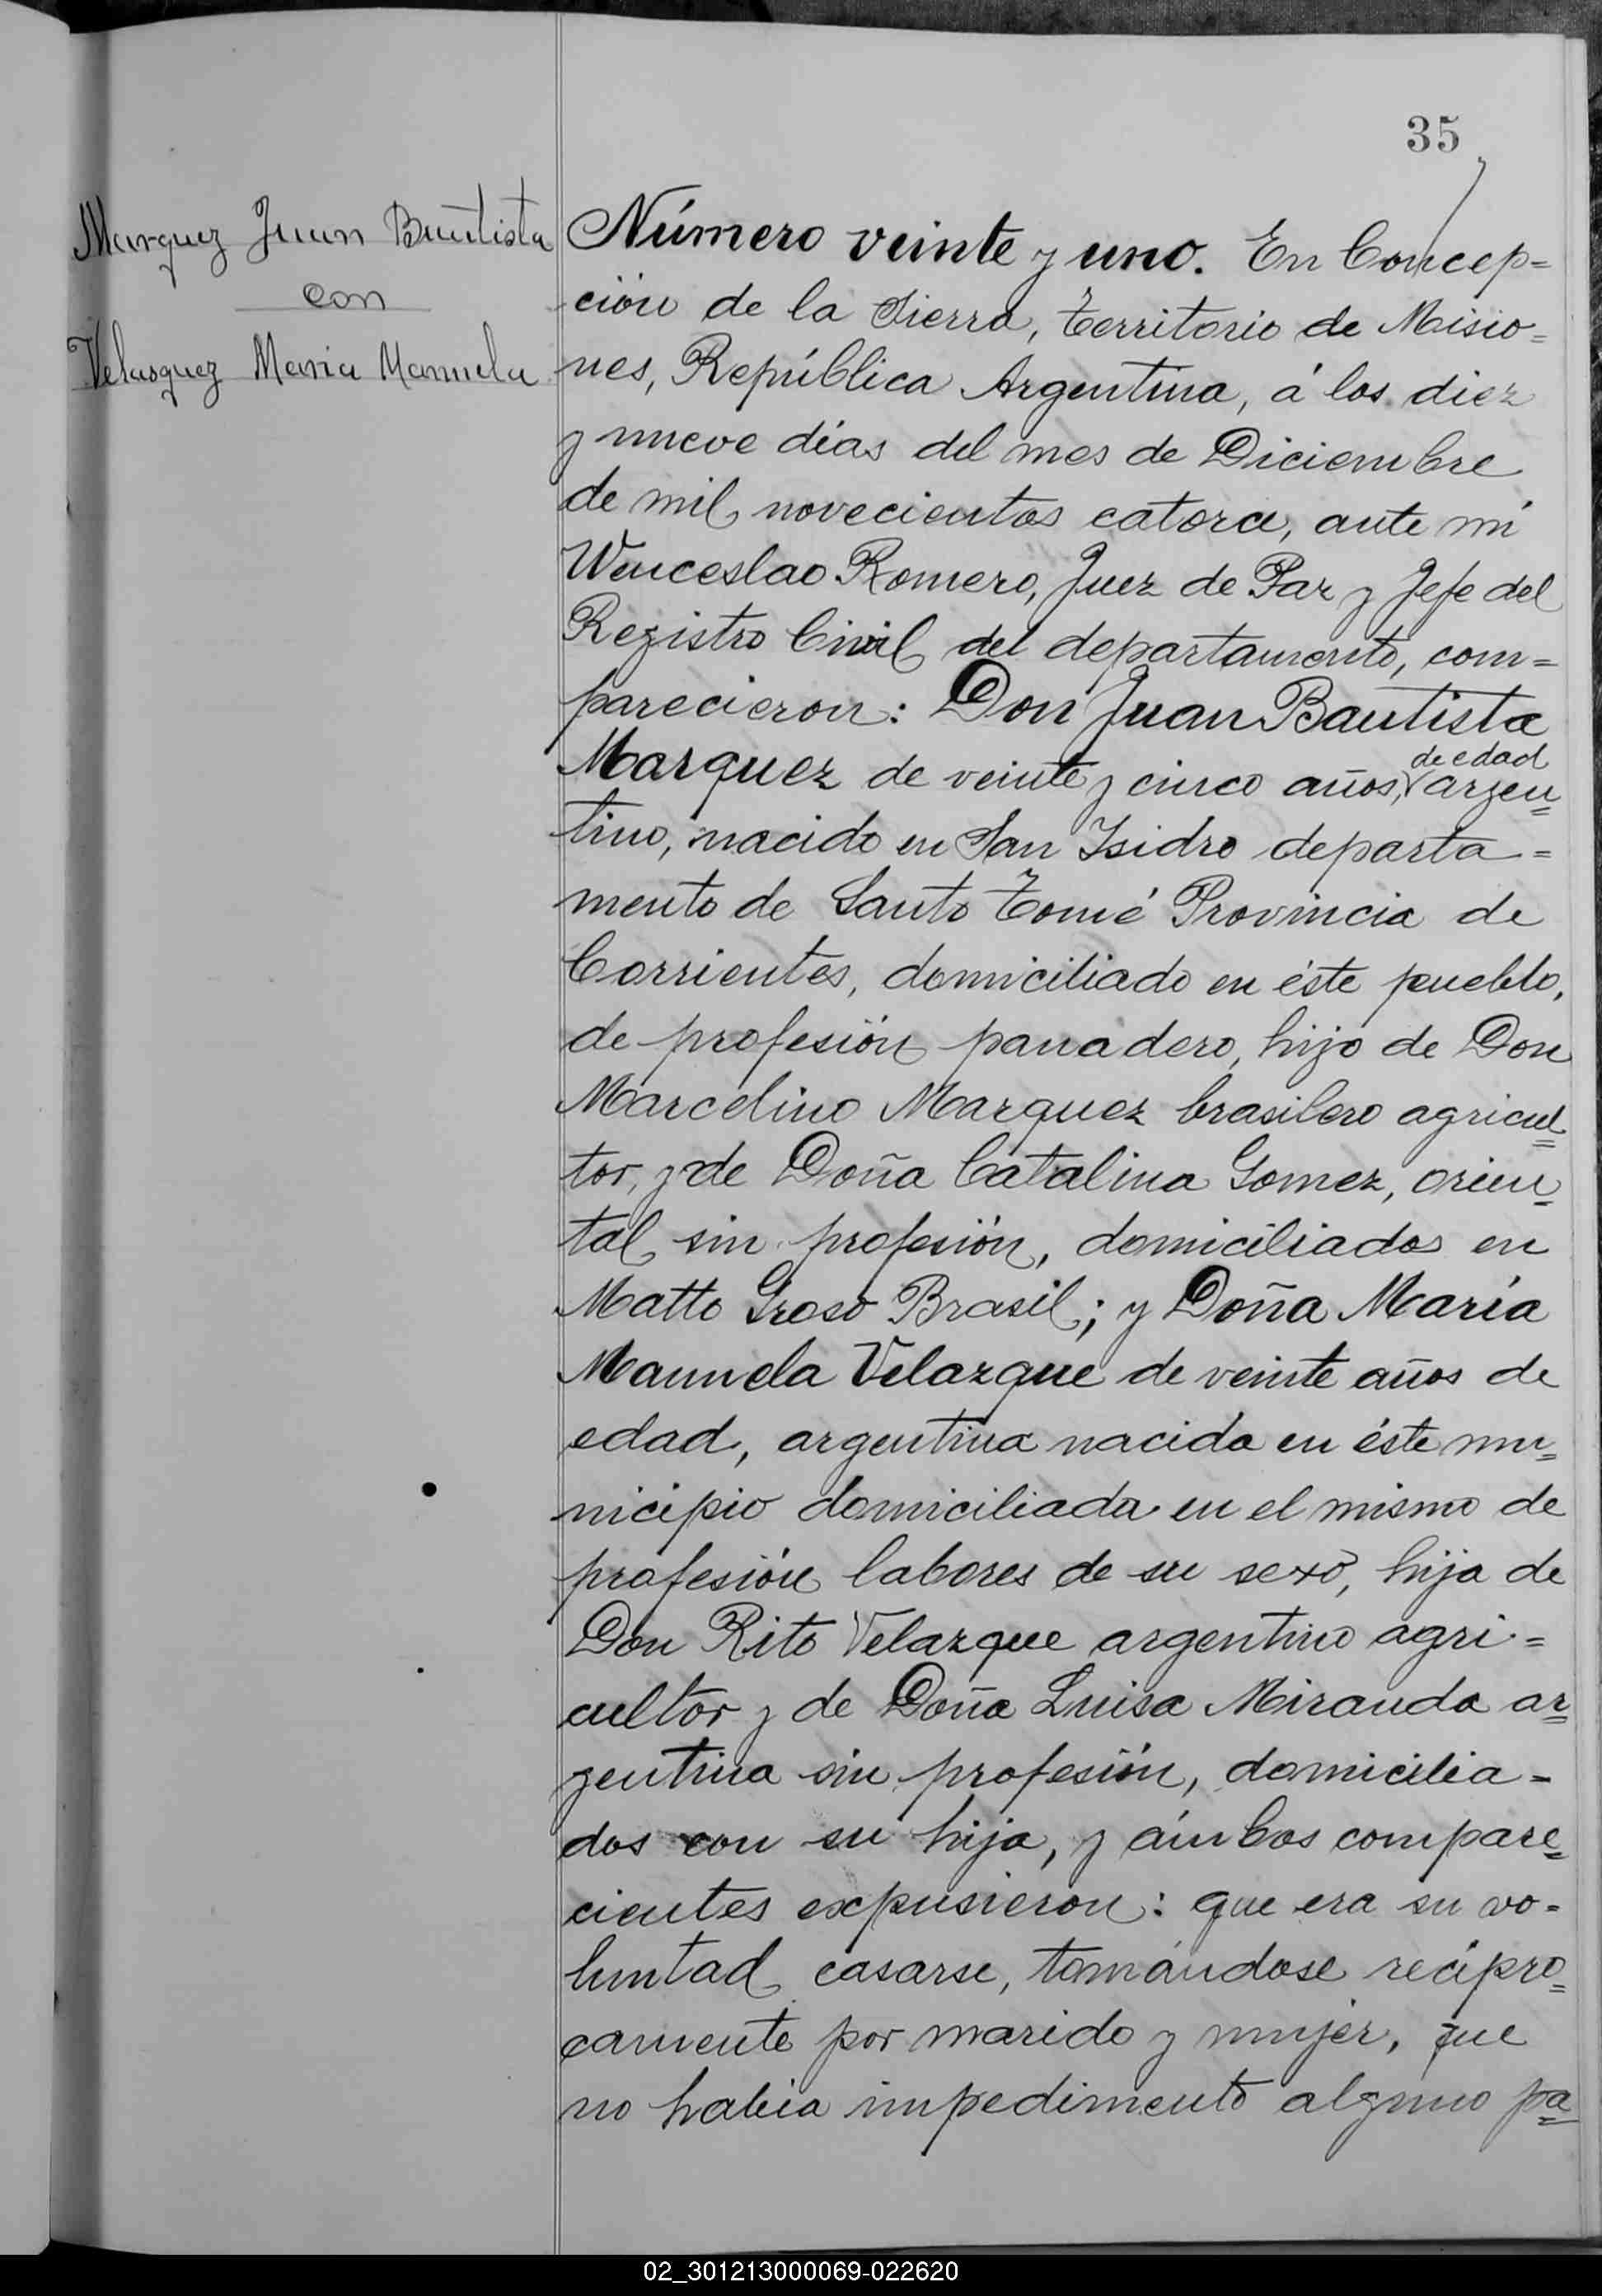 35
Marquez Juan Bautista
con
Velasquez Maria Manuela
Número veinte y uno. En Concep=
ción de la Sierra, territorio de Misio=
nes, República Argentina, á los diez
y nueve días del mes de Diciembre
de mil novecientos catorce, ante mí
Wenceslao Romero, Juez de Paz y Jefe del
Registro Civil del departamento, com=
parecieron: Don Juan Bautista
de edad
Marquez de veinte y cinco años, argen=
tino, nacido en San Isidro departa=
mento de Santo Tomé Provincia de
Corrientes, domiciliado en éste pueblo,
de profesión panadero, hijo de Don
Marcelino Marquez brasilero agricul=
tor, y de Doña Catalina Gomez, orien=
tal sin profesión, domiciliados en
Matto Groso Brasil; y Doña María
Manuela Velazque de veinte años de
edad, argentina nacida en éste mu=
nicipio domiciliada en el mismo de
profesión labores de su sexo, hija de
Don Rito Velazque argentino agri=
cultor y de Doña Luisa Miranda ar=
gentina sin profesión, domicilia=
dos con su hija, y ámbos compare=
cientes expusieron: que era su vo=
luntad casarse, tomándose recipro=
camente por marido y mujer, que
no habia impedimento alguno pa=
02_301213000069-022620